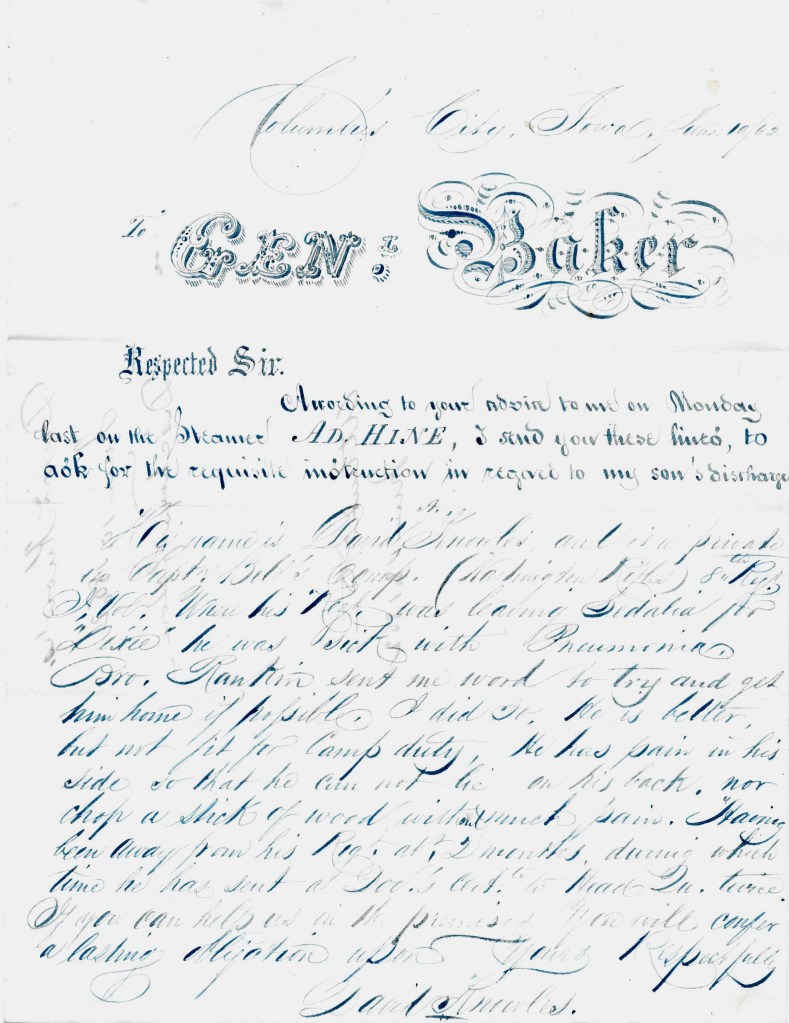 Columbus City, Iowa, June 10/62
To GENL: Baker
Respected Sir.
According to your advice to me on Monday
last on the Steamer AD. HINE, I send you these lines, to
ask for the requisite instruction in regard to my son's discharge
name is David A. Knowles, and is a private
in Capt. Bell's Comp. (Washington Rifles) 8th Regt.
I. Vol. When his Regt. was leaving Sedalia for
"Dixie" he was Sick with Pneumonia.
Bro. Rankin sent me word to try and get
him home if possible. I did so. He is better,
but not fit for Camp duty. He has pain in his
side so that he can not lie on his back, nor
chop a stick of wood without much pain. Having
been away from his Regt. abt. 2 months, during which
time he has sent a Doc.'s Cert. to Head Qu. twice.
If you can help us in the premises You will confer
a lasting obligation upon Yours Respectfully
David Knowles.